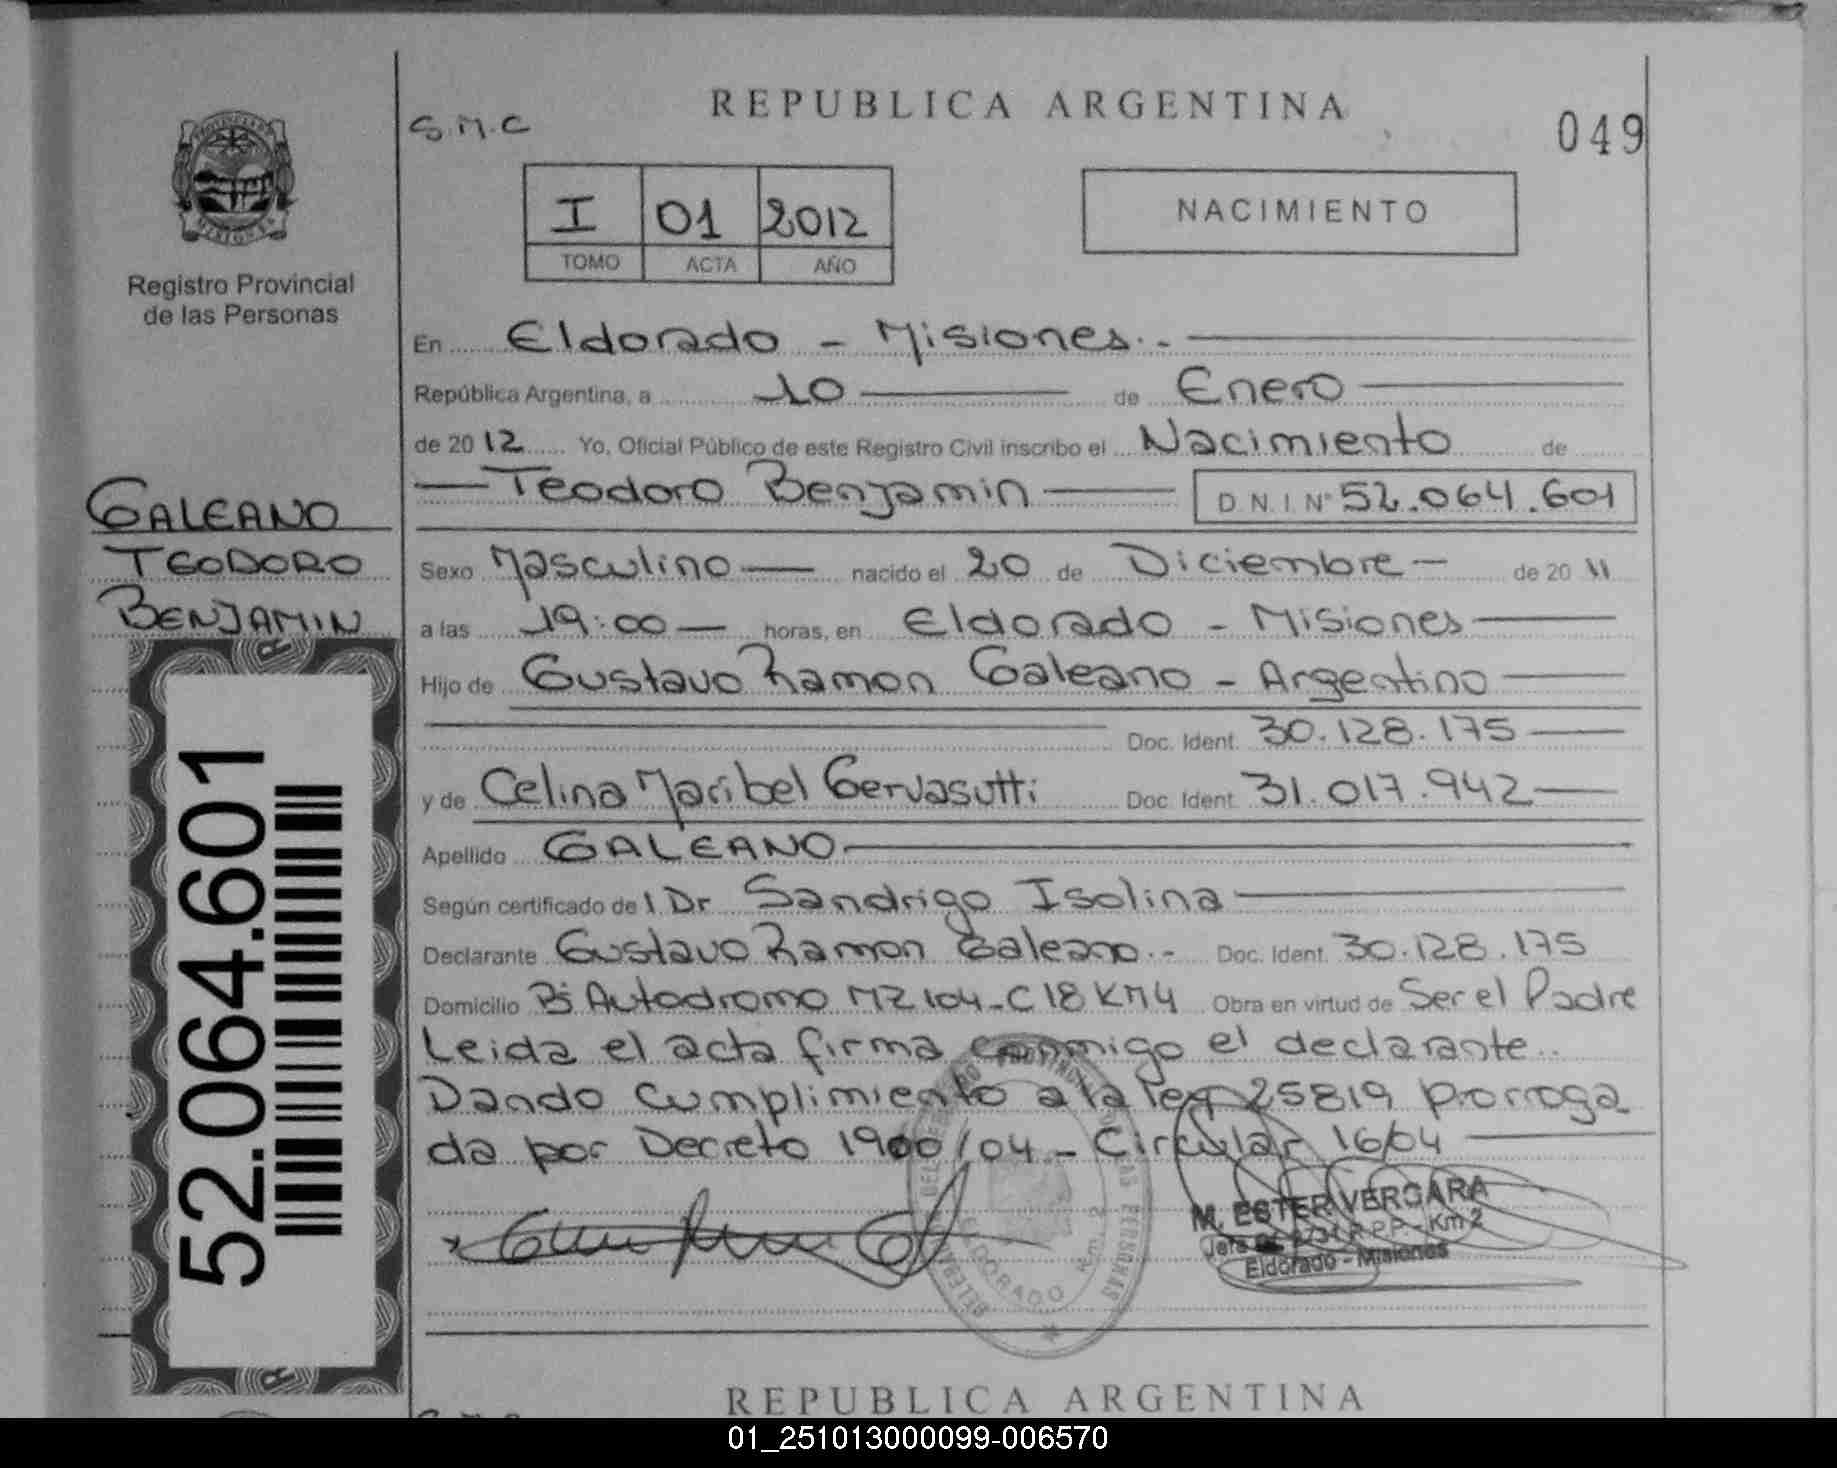 REPUBLICA ARGENTINA
049
S.M.C
I 01 2012
TOMO ACTA AÑO
NACIMIENTO
PROVINCIA DE MISIONES
Registro Provincial
de las Personas
En Eldorado - Misiones.-
República Argentina, a 10 de Enero
de 2012 Yo, Oficial Público de este Registro Civil inscribo el Nacimiento de
Teodoro Benjamin D.N.I. Nº 52.064.601
GALEANO
TEODORO
BENJAMIN
Sexo Masculino nacido el 20 de Diciembre - de 2011
a las 19:00 horas, en Eldorado - Misiones
Hijo de Gustavo Ramon Galeano - Argentino
Doc. Ident. 30.128.175
y de Celina Maribel Gervasutti Doc. Ident. 31.017.942
Apellido GALEANO
Según certificado de l Dr Sandrigo Isolina
Declarante Gustavo Ramon Galeano.- Doc. Ident. 30.128.175
Domicilio Bº Autodromo MZ 104-C18 KM4 Obra en virtud de Ser el Padre
Leida el acta firma conmigo el declarante..
Dando cumplimiento a la ley 25819 prorroga
da por Decreto 1900/04 - Circular 16/04
52.064.601
M. ESTER VERGARA
Jefe R.P.P. - Km 2
Eldorado - Misiones
ELDORADO Km. 2
REPUBLICA ARGENTINA
01_251013000099-006570